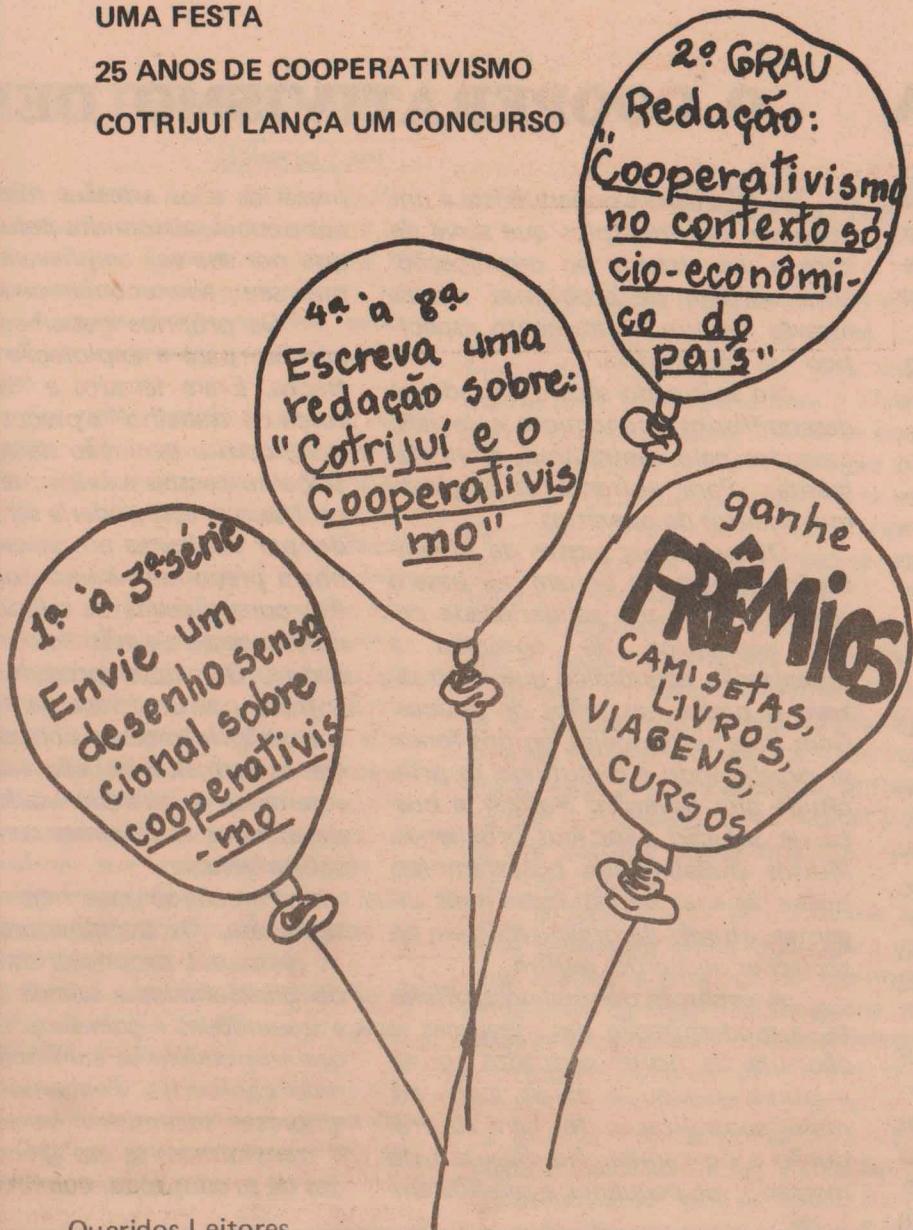 UMA FESTA
25 ANOS DE COOPERATIVISMO
COTRIJUÍ LANÇA UM CONCURSO
2º GRAU
Redação:
"Cooperativismo
no contexto só-
cio-econômi-
co do
país"
4ª à 8ª
Escreva uma
redação sobre:
"Cotrijuí e o
Cooperativis
mo"
1ª à 3ª série
Envie um
desenho sensa
cional sobre
cooperativis
-mo
ganhe
PRÊMIOS
CAMISETAS,
LIVROS,
VIAGENS,
CURSOS
Queridos Leitores